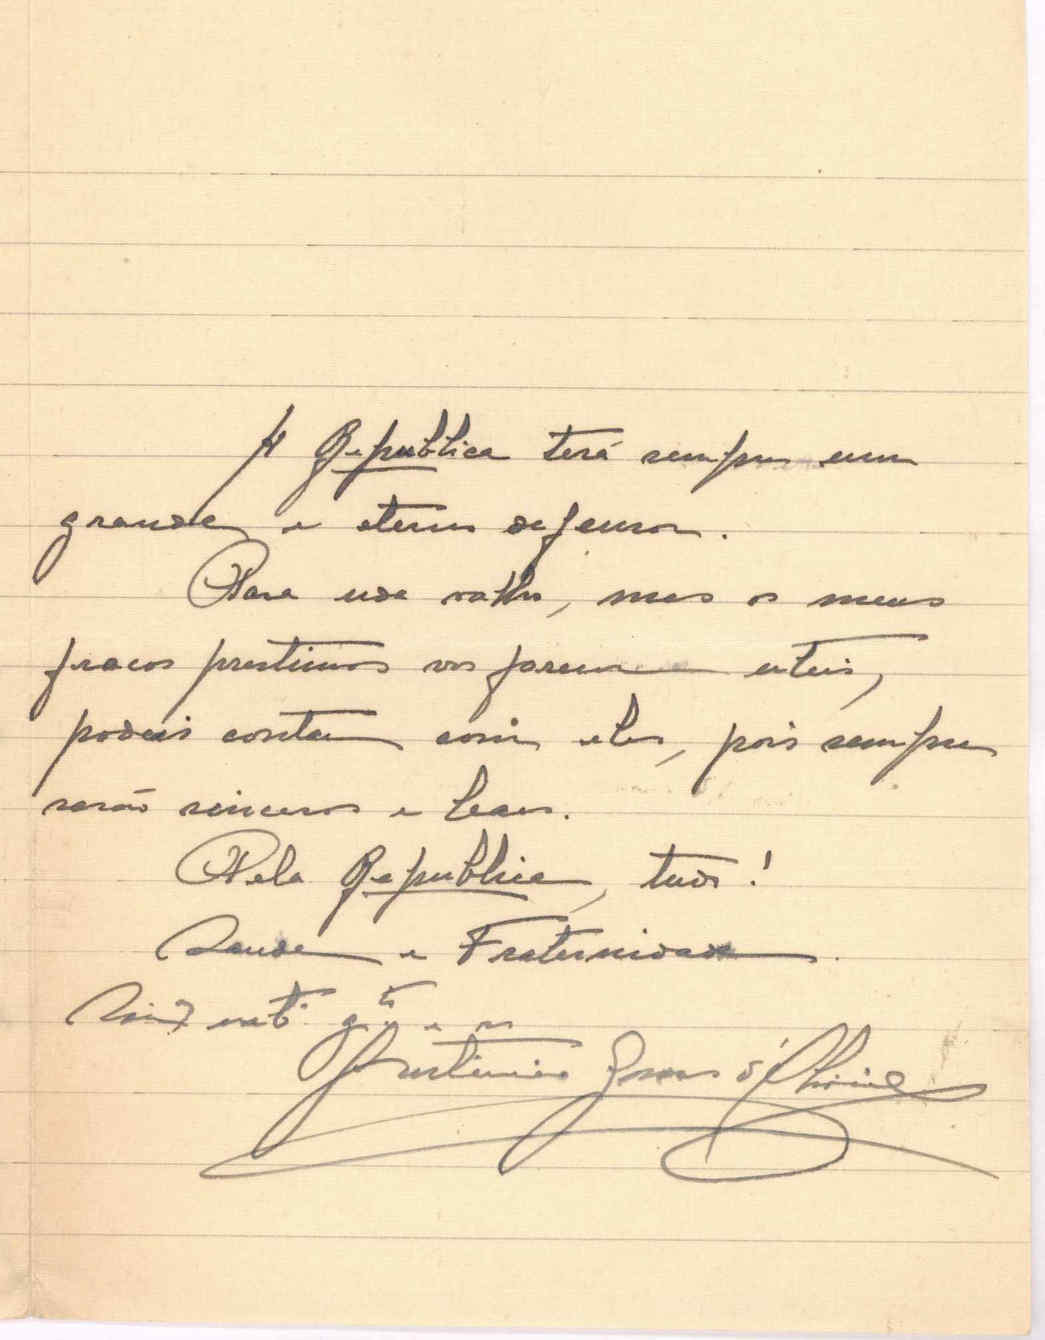 A Republica terá sempre um
grande e eterno defensor.
Para nada valho, mas os meus
fracos prestimos vos forem uteis,
podeis contar com eles, pois sempre
serão sinceros e leaes.
Pela Republica, tudo!
Saude e Fraternidade.
e
d'Oliveira